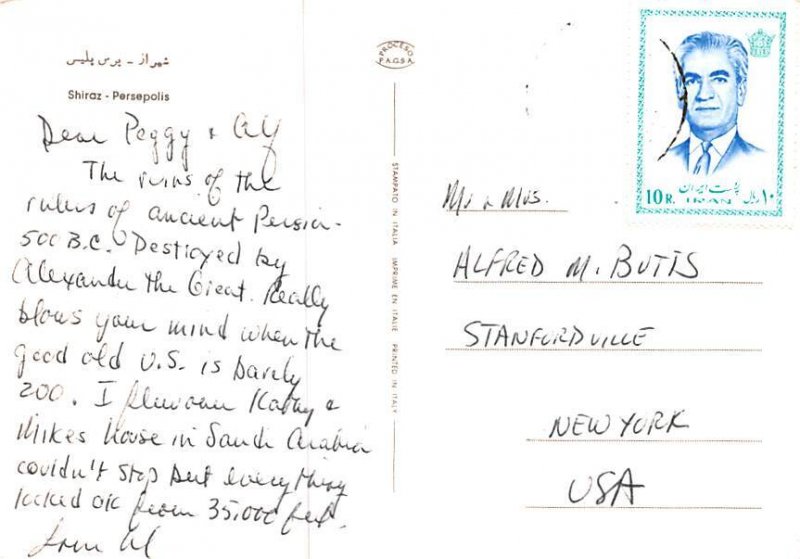 شیراز - پرس پلیس
Shiraz - Persepolis
Dear Peggy & Alf
The ruins of the
rulers of ancient Persia -
500 B.C. Destroyed by
Alexander the Great. Really
blows your mind when the
good old U.S. is barely
200. I flew over Kathy &
Mikes House in Saudi Arabia
couldn't stop but everything
looked ok from 35,000 feet.
PROCESO
F.A.G.S.A.
STAMPATO IN ITALIA IMPRIME EN ITALIE PRINTED IN ITALY
پست ایران
10 R. IRAN ۱۰ ریال
Mr & Mrs.
ALFRED M. BUTTS
STANFORDVILLE
NEW YORK
USA